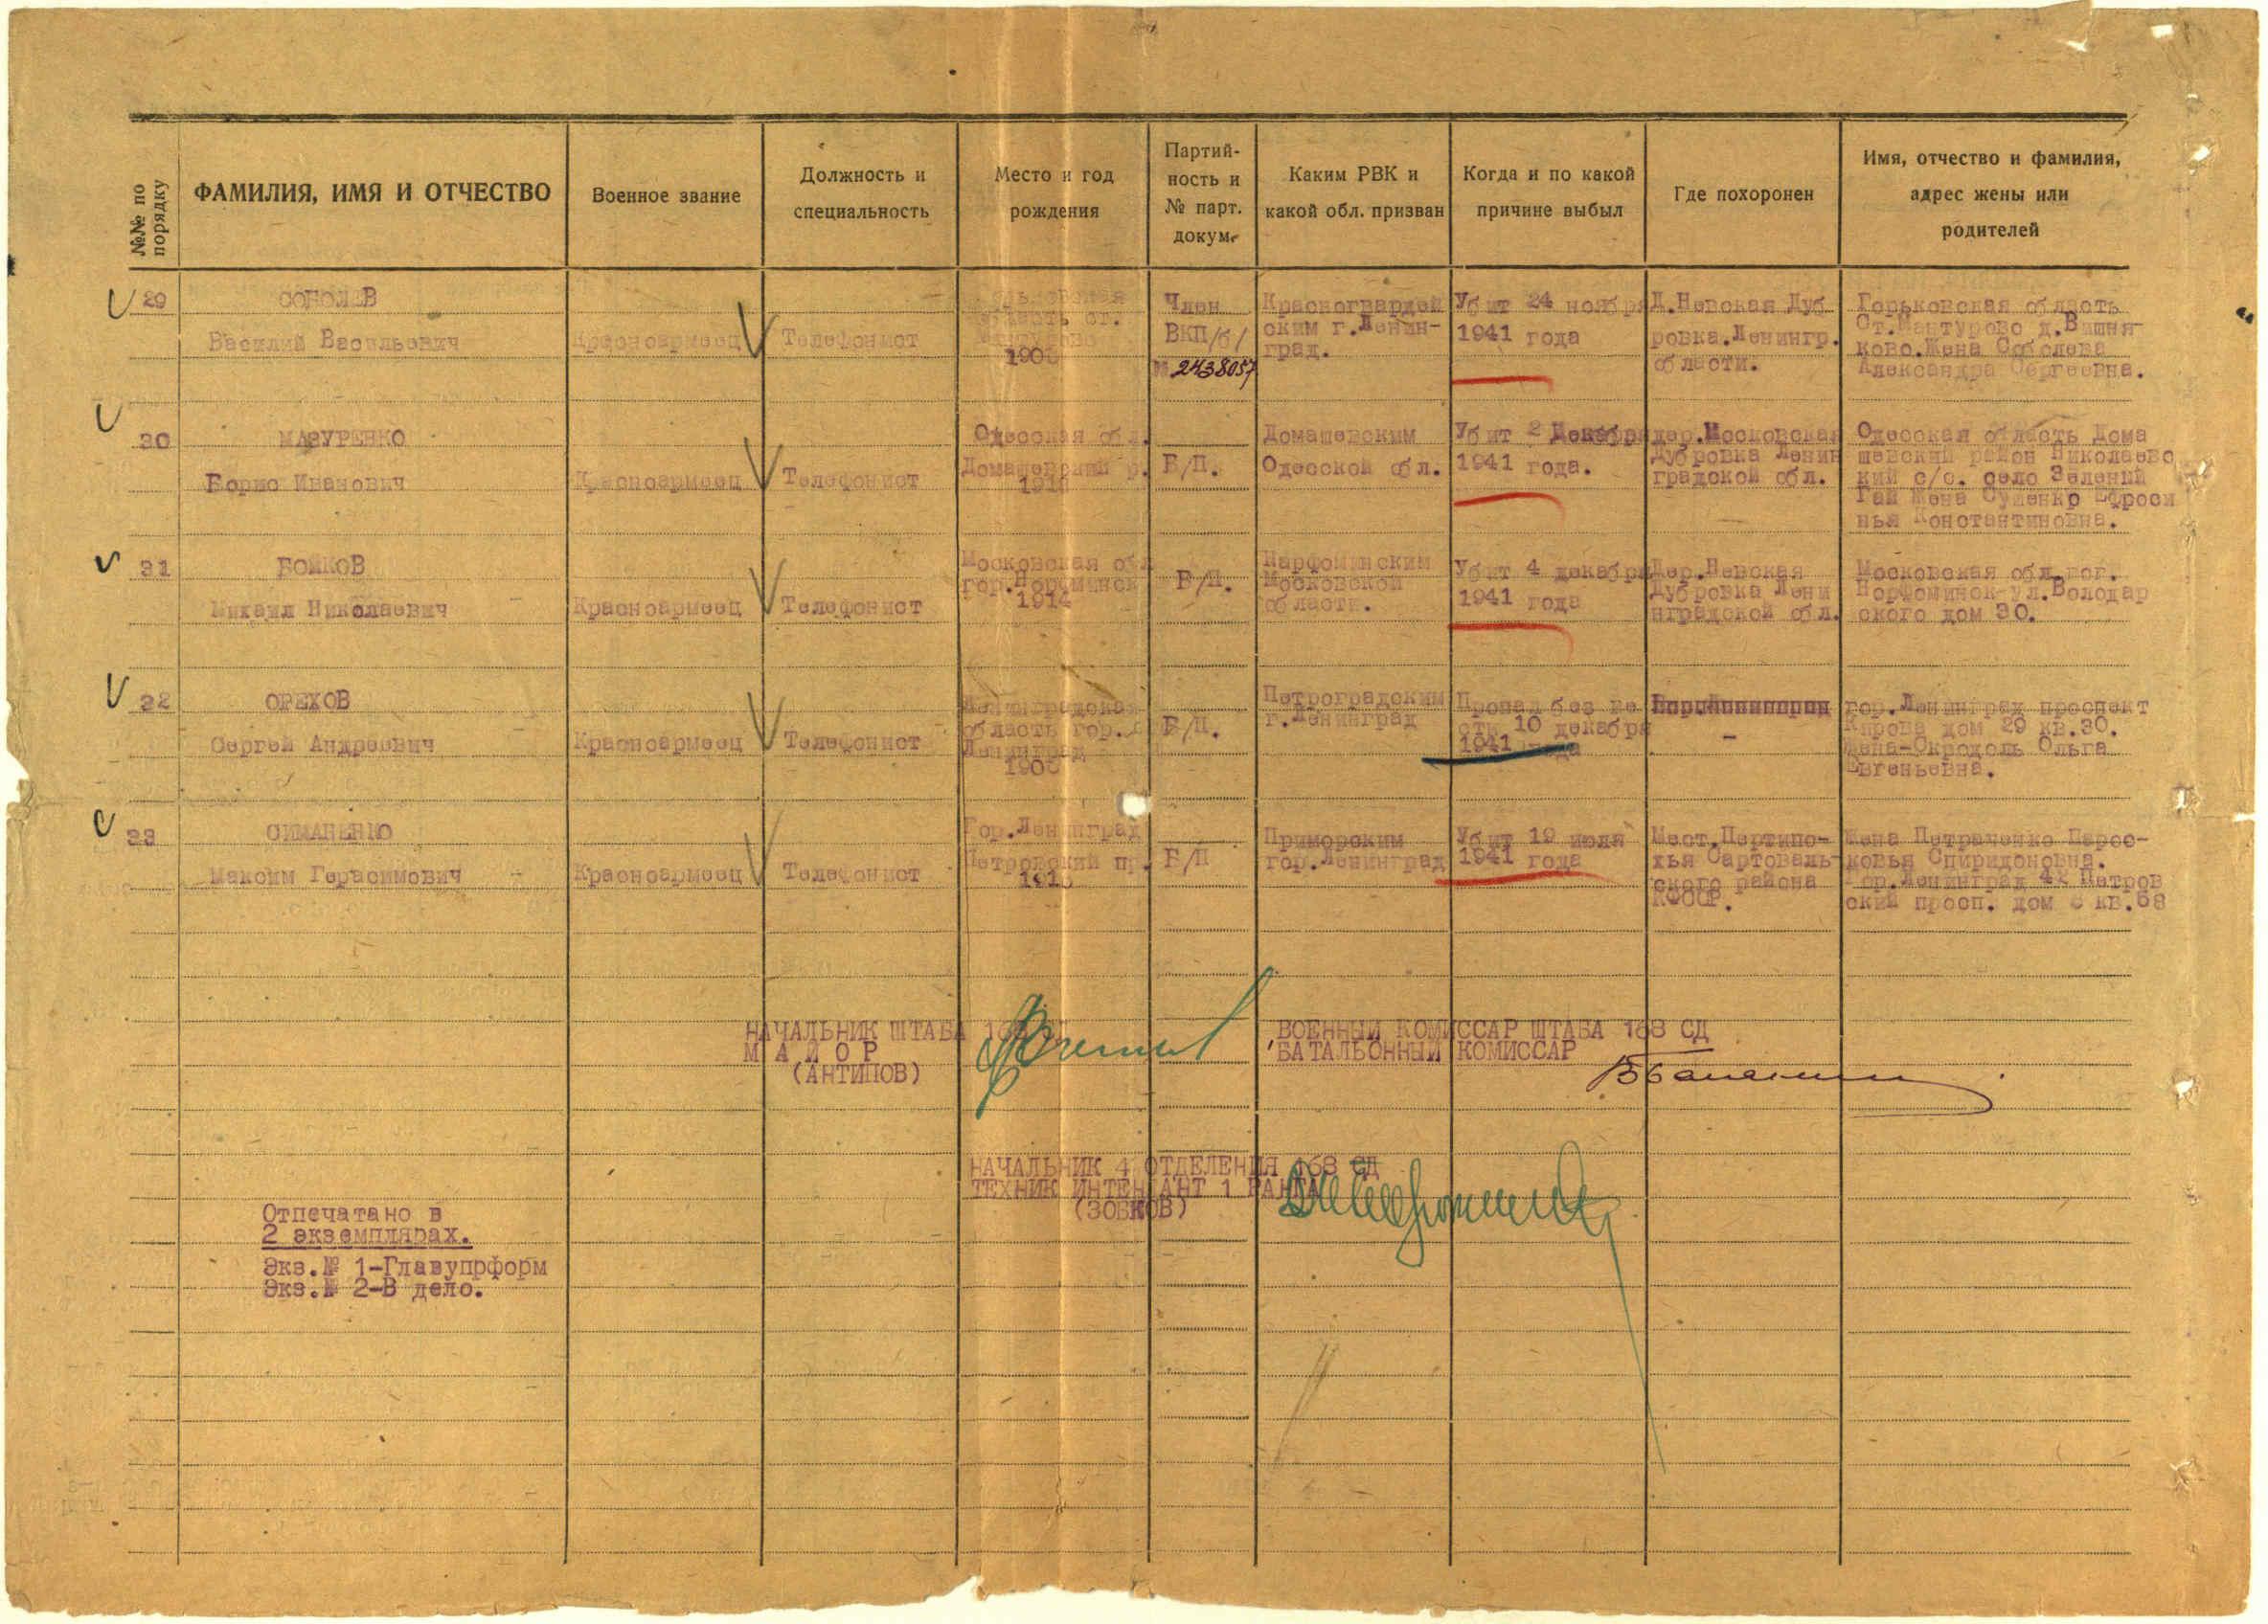 №№ по порядку
ФАМИЛИЯ, ИМЯ И ОТЧЕСТВО
Военное звание
Должность и
специальность
Место и год
рождения
Партий-
ность и
№ парт.
докум.
Каким РВК и
какой обл. призван
Когда и по какой
причине выбыл
Где похоронен
Имя, отчество и фамилия,
адрес жены или
родителей
29
СОБОЛЕВ
Василий Васильевич
Красноармеец
Телефонист
область ст.
Член
ВКП/б/
№ 2438057
Красногвардей
ским г.Ленин-
град.
Убит 24 ноября
1941 года
Д.Невская Дуб
ровка.Ленингр.
области.
Горьковская область
Ст.Мантурово д.Вишня
ково.Жена Соболева
Александра Сергеевна.
30
МАЗУРЕНКО
Борис Иванович
Красноармеец
Телефонист
Одесская обл.
Домашевский р.
Б/П.
Домашевским
Одесской обл.
Убит 2 Декабря
1941 года.
дер.Московская
Дубровка Ленин
градской обл.
Одесская область Дома
шевский район Николаевс
кий с/с. село Зеленый
Гай Жена Суменко Ефроси
нья Константиновна.
31
БОЙКОВ
Михаил Николаевич
Красноармеец
Телефонист
Московская обл
1914
Б/П.
Нарфоминским
Московской
области.
Убит 4 декабря
1941 года
Дер.Невская
Дубровка Лени
нградской обл.
Московская обл.
Норфоминск ул.Володар
ского дом 30.
32
ОРЕХОВ
Сергей Андреевич
Красноармеец
Телефонист
Ленинградская
область гор.
Ленинград
Б/П.
Петроградским
г.Ленинград
Пропал без ве
сти 10 декабря
1941 года
-
гор.Ленинград проспект
Кирова дом 29 кв.30.
Жена-Окродоль Ольга
Евгеньевна.
33
СИМАНЕНКО
Максим Герасимович
Красноармеец
Телефонист
Гор.Ленинград
Петровский пр.
Б/П
Приморским
гор.Ленинград
Убит 19 июля
1941 года
Мест.Пертипо-
хья Сартоваль-
ского района
КФССР.
Жена Петраченко Парос-
ковья Спиридоновна.
Гор.Ленинград 42 Петров
ский просп. дом кв.68
НАЧАЛЬНИК ШТАБА 168 СД
МАЙОР
(АНТИПОВ)
ВОЕННЫЙ КОМИССАР ШТАБА 168 СД
БАТАЛЬОННЫЙ КОМИССАР
НАЧАЛЬНИК 4 ОТДЕЛЕНИЯ 168 СД
ТЕХНИК ИНТЕНДАНТ 1 РАНГА
(ЗОБКОВ)
Отпечатано в
2 экземплярах.
Экз.№ 1-Главупрформ
Экз.№ 2-В дело.